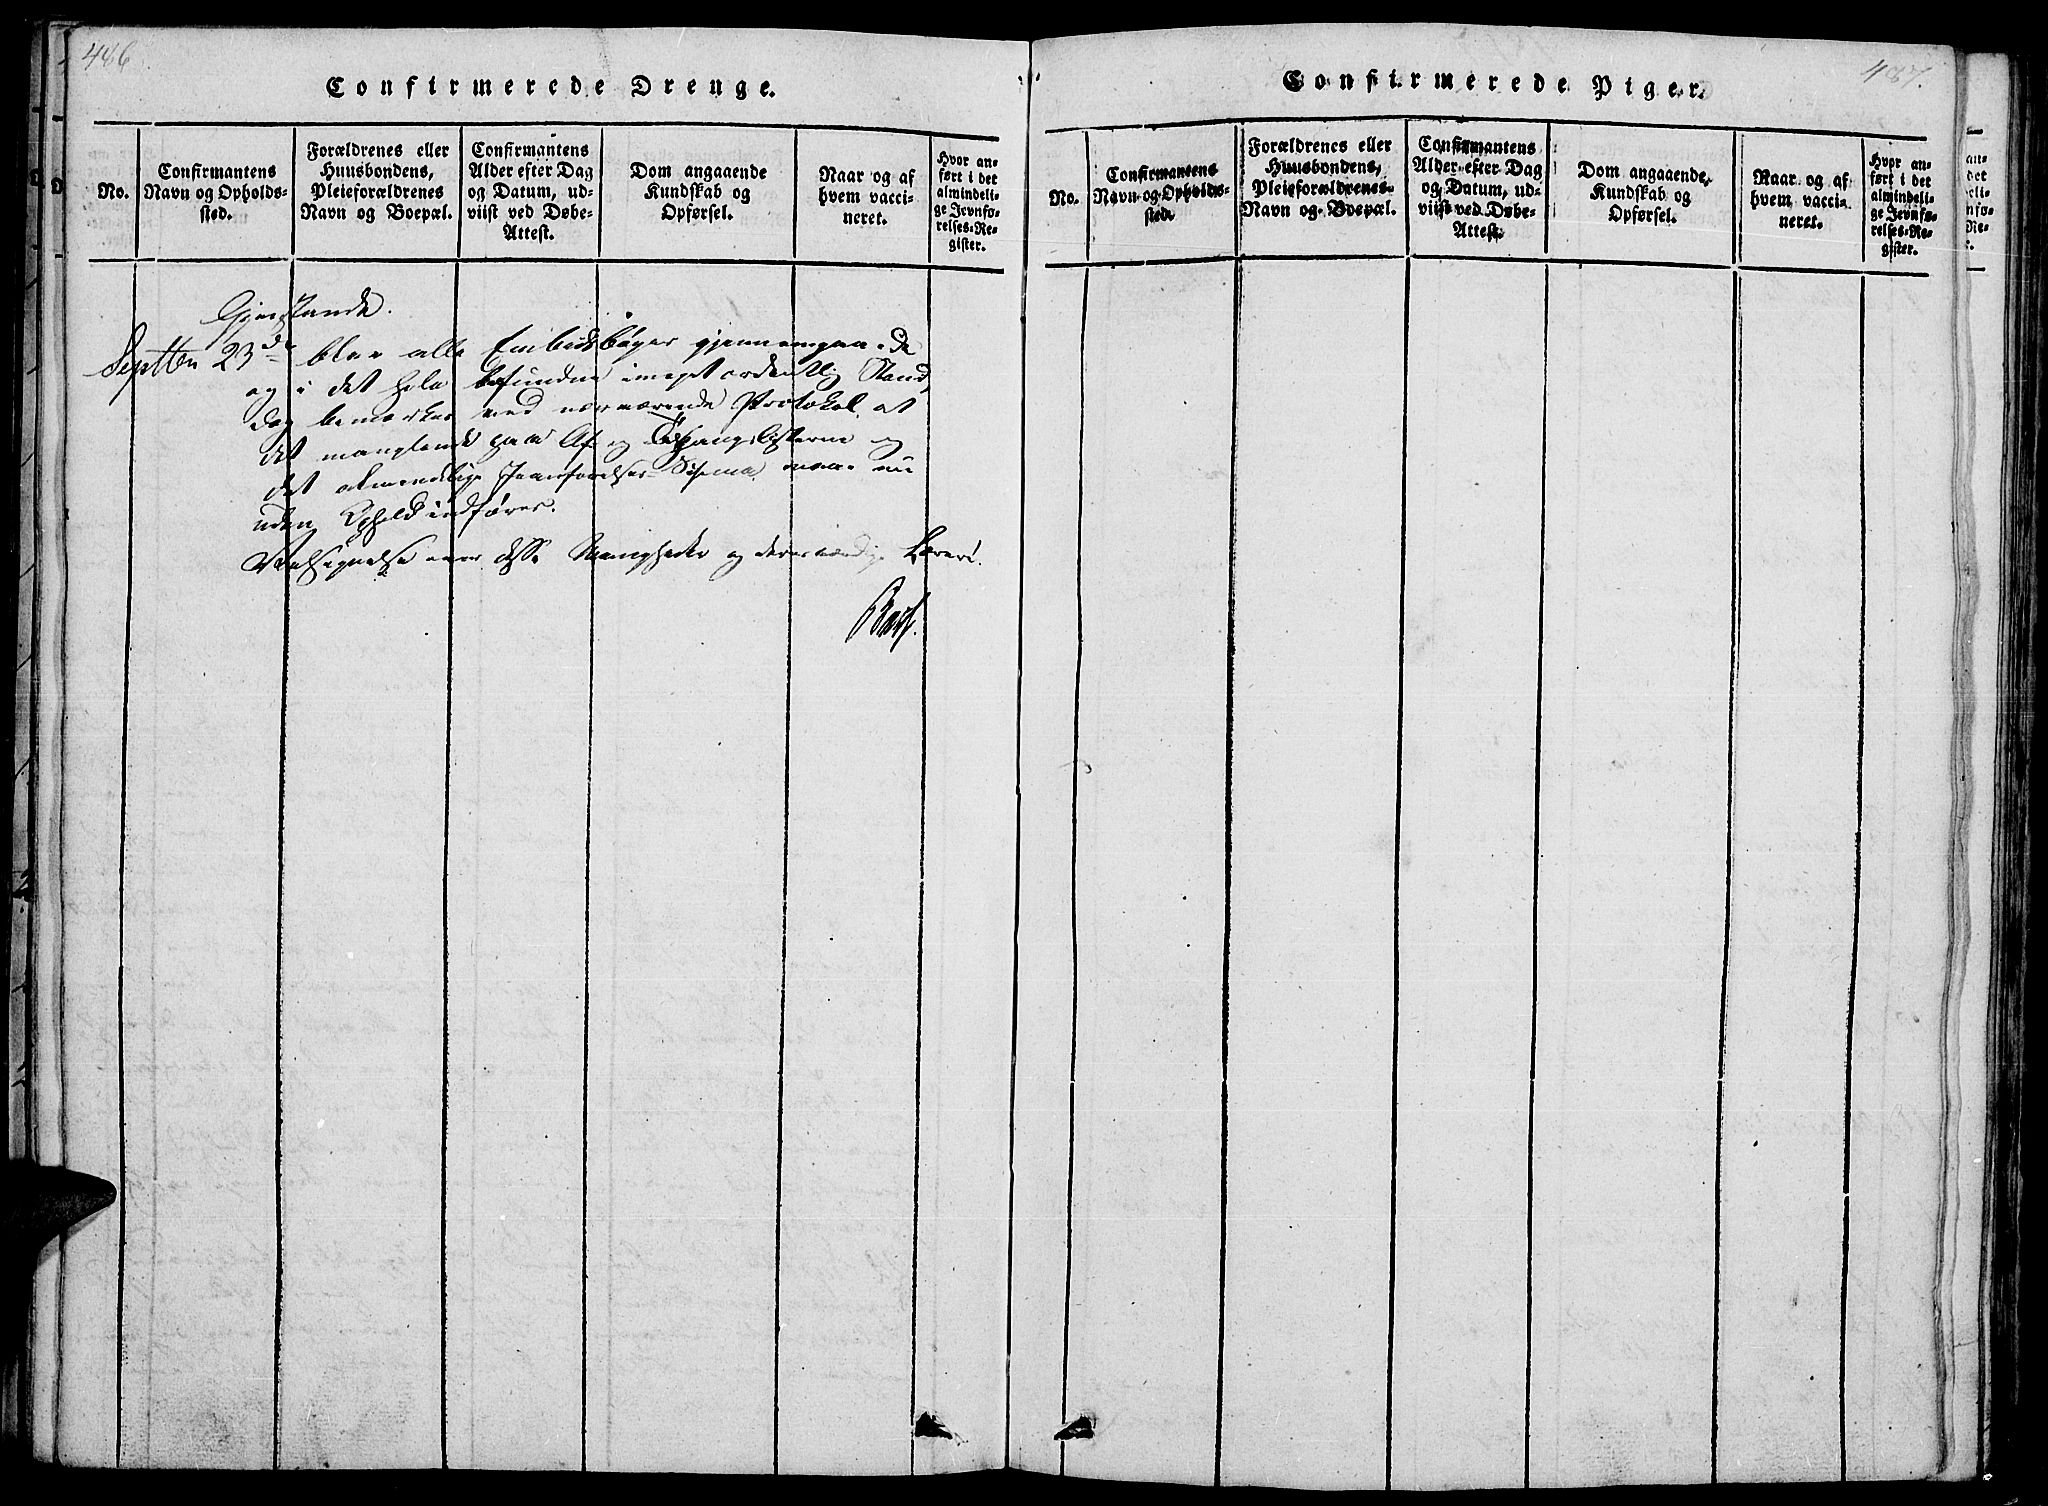 486
Confirmerede Drenge.
No.
Confirmantens
Navn og Opholds-
sted.
Forældrenes eller
Huusbondens,
Pleieforældrenes
Navn og Boepæl.
Confirmantens
Alder efter Dag
og Datum, ud-
viist ved Døbe-
Attest.
Dom angaaende
Kundskab og
Opførsel.
Naar og af
hvem vacci-
neret.
Hvor an-
ført i det
almindeli-
ge Jevnfø-
relses-Re-
gister.
Septbr 23de blev alle Embedsbøger gjennemgaaede
og i det hele befundne i meget ordentlig Stand,
dog bemærkes ved nærværende Protokol at
det manglende paa Af- og Tilgangslisterne og
det almindelige Jevnførelses-Schema maae nu
uden Ophold indføres.
Velsignelse over disse Menigheder og deres værdige Lærer!
487.
Confirmerede Piger.
No.
Confirmantens
Navn og Opholds-
sted.
Forældrenes eller
Huusbondens,
Pleieforældrenes
Navn og Boepæl.
Confirmantens
Alder efter Dag
og Datum, ud-
viist ved Døbe-
Attest.
Dom angaaende
Kundskab og
Opførsel.
Naar og af
hvem vacci-
neret.
Hvor an-
ført i det
almindeli-
ge Jevnfø-
relses-Re-
gister.